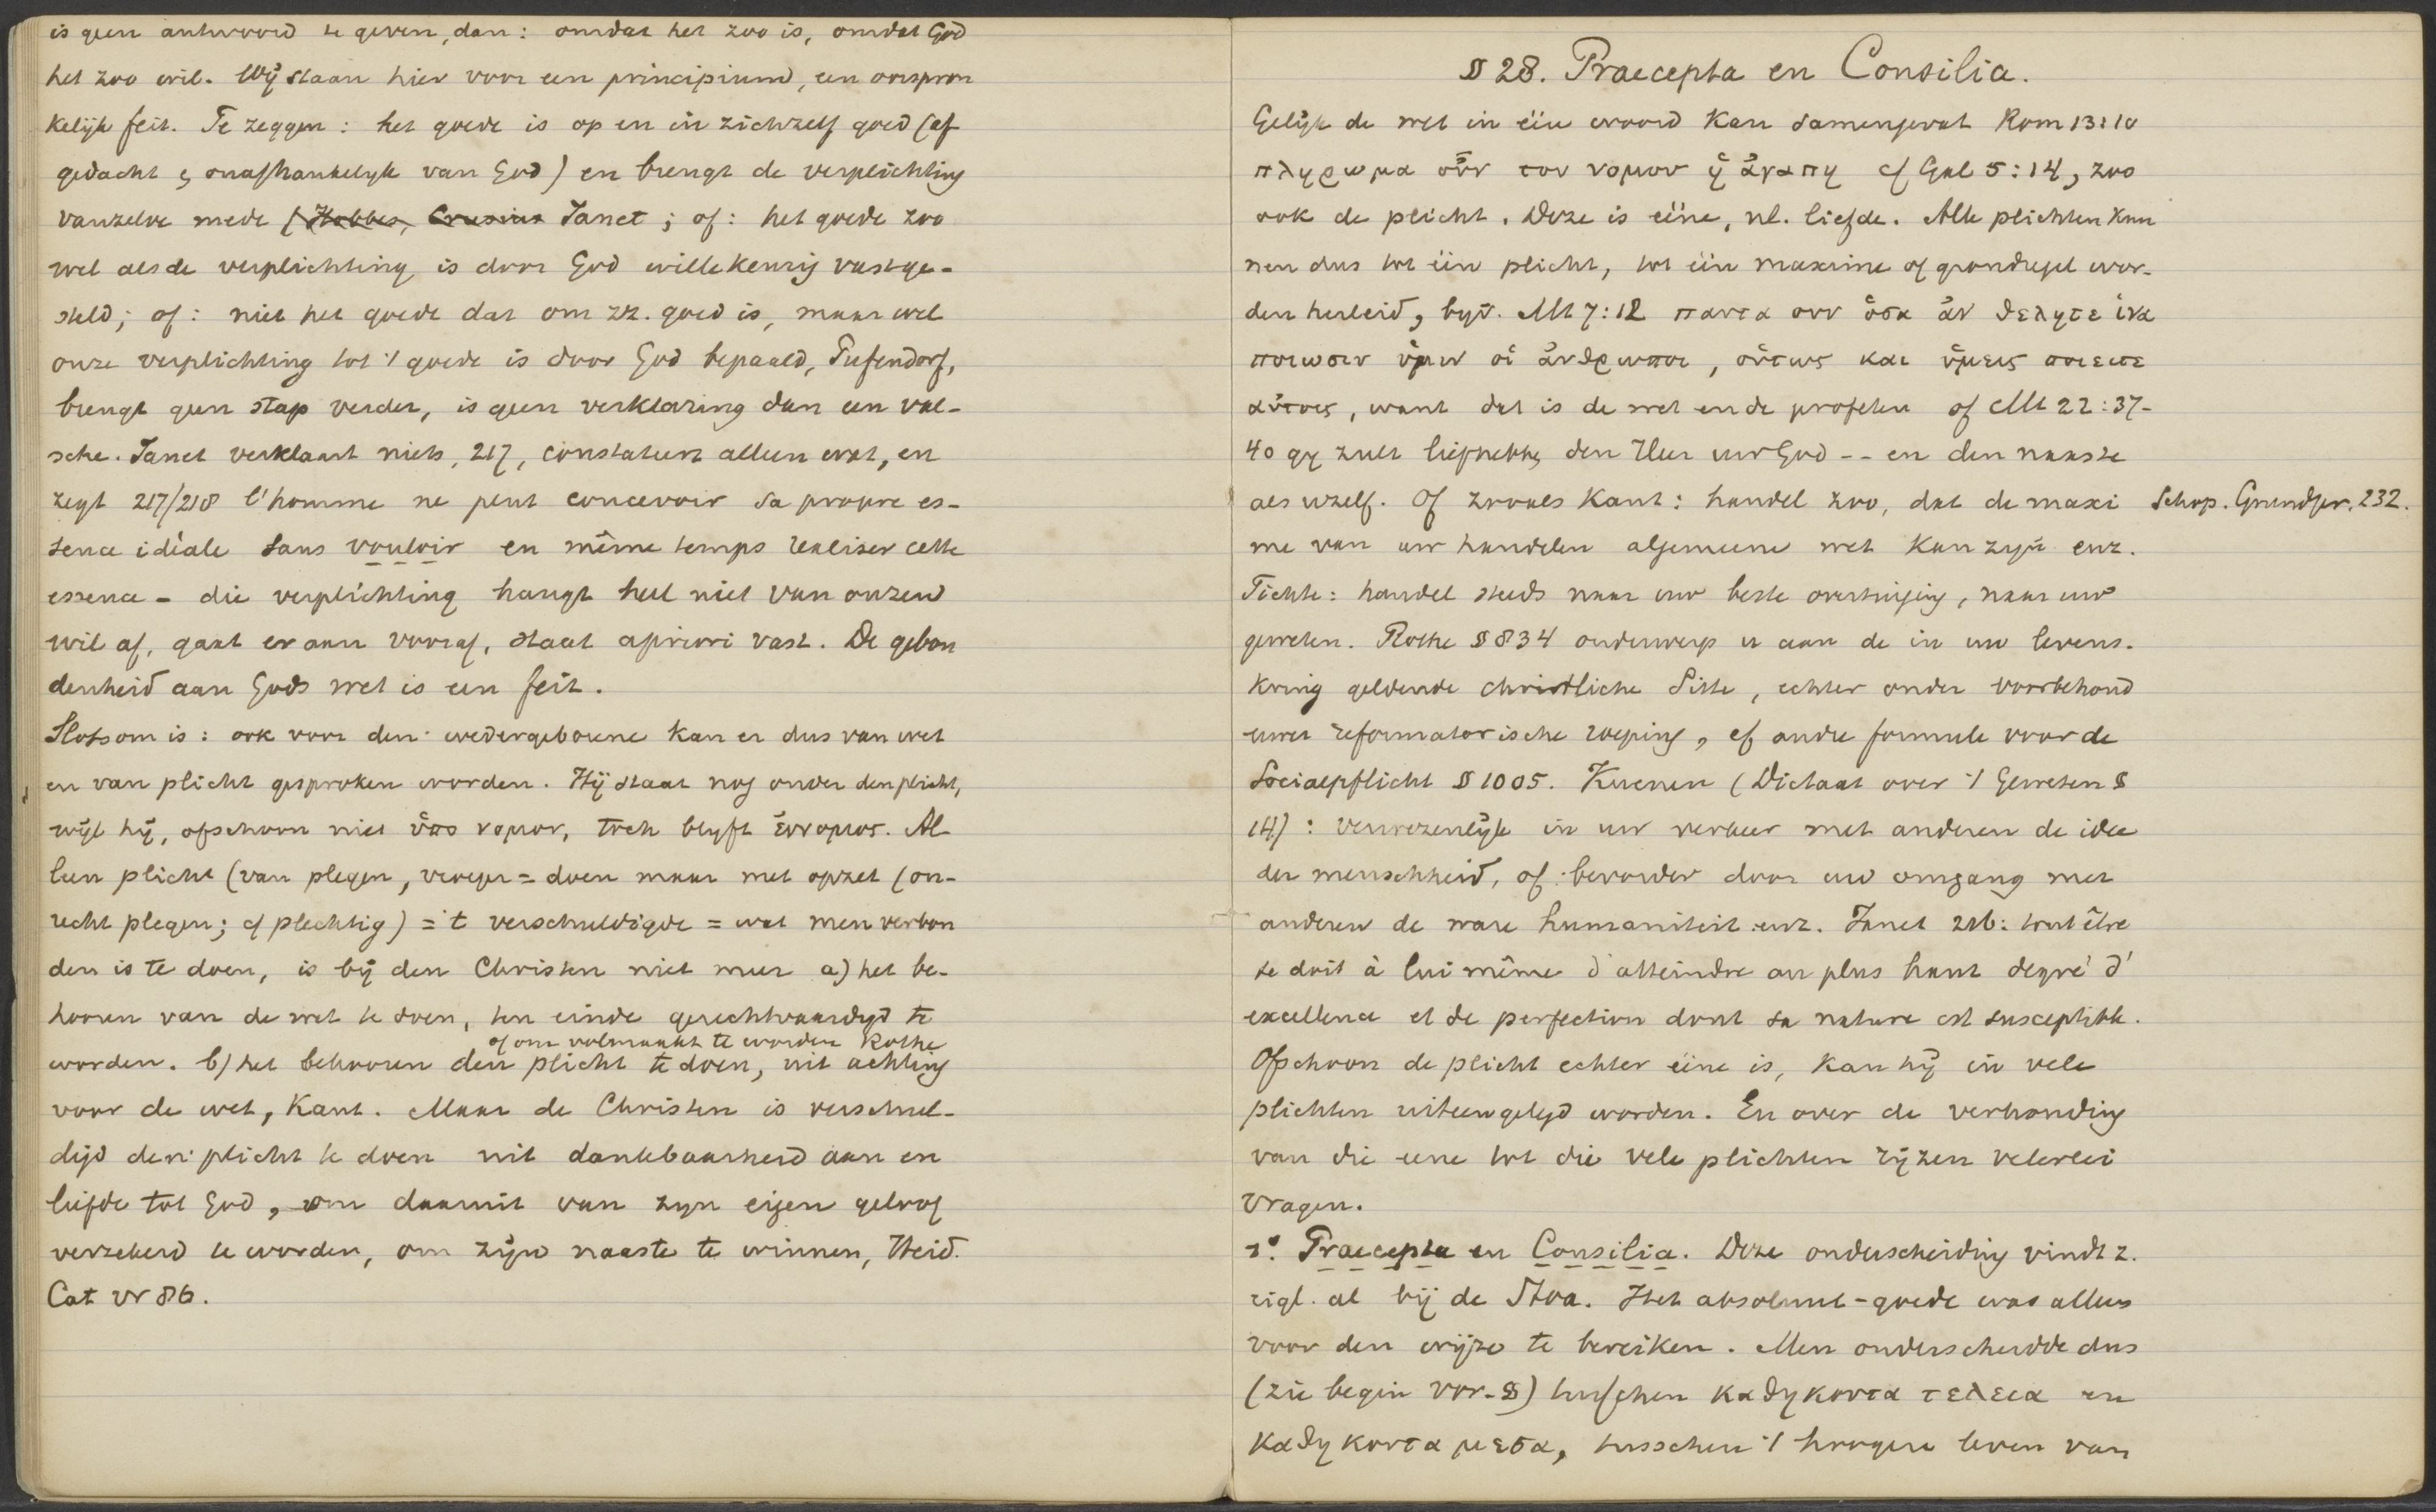 is geen antwoord te geven, dan: omdat het zoo is, omdat God
het zoo wil. Wij staan hier voor een principium, een oorspron
kelijk feit. Te zeggen: het goede is op en in zichzelf goed (af
gedacht &, onafhankelijk van God) en brengt de verplichting
vanzelve mede (Hobbes, Crusius Janet; of: het goede zoo
wel als de verplichting is door God willekeurig vastge-
steld; of: niet het goede dat om zz. goed is, maar wel
onze verplichting tot 't goede is door God bepaald, Pufendorf,
brengt geen stap verder, is geen verklaring dan een val-
sche. Janet verklaart niets, 217, constateert alleen wat, en
zegt 217/218 l'homme ne peut concevoir sa propre es-
sence idéale sans vouloir en même temps realiser cette
essence - die verplichting hangt heel niet van onzen
wil af, gaat er aan vooraf, staat apriori vast. De gebon
denheid aan Gods wet is een feit.
Slotsom is: ook voor den wedergeboorne kan er dus van wet
en van plicht gesproken worden. Hij staat nog onder den plicht,
wijl hij, ofschoon niet ὑπο νομον, toch blijft ἐννομος. Al-
leen plicht (van plegen, = doen maar met opzet (on-
recht plegen; cf plechtig) = 't verschuldigde = wat men verbon
den is te doen, is bij den Christen niet meer a) het be-
hooren van de wet te doen, ten einde gerechtvaardigd te
of om volmaakt te worden Rothe
worden. b) het behooren den plicht te doen, uit achting
voor de wet, Kant. Maar de Christen is verschul-
digd den plicht te doen uit dankbaarheid aan en
liefde tot God, om daaruit van zijn eigen geloof
verzekerd te worden, om zijn naaste te winnen, Heid.
Cat vr 86.
§ 28. Praecepta en Consilia.
Gelijk de wet in één woord kan samengevat Rom 13:10
πληρωμα οὖν του νομου ἡ ἀγαπη cf Gal 5:14, zoo
ook de plicht. Deze is ééne, nl. liefde. Alle plichten kun
nen dus tot één plicht, tot één maxime of grondregel wor-
den herleid, bijv. Mt 7:12 παντα ουν ὁσα ἀν θελητε ἱνα
ποιωσιν ὑμιν οἱ ἀνθρωποι, οὑτως και ὑμεις ποιειτε
αὐτοις, want dat is de wet en de profeten of Mt 22:37-
40 gij zult liefhebben den Heer uw God -- en den naaste
als uzelf. Of zooals Kant: handel zoo, dat de maxi
Schop. Grundpr. 232.
me van uw handelen algemeene wet kan zijn enz.
Fichte: handel steeds naar uw beste overtuiging, naar uw
geweten. Rothe § 834 onderwerp u aan de in uw levens-
kring geldende christliche Sitte, echter onder voorbehoud
uwer reformatorische roeping, cf andre formule voor de
Socialpflicht § 1005. Kuenen (Dictaat over 't Geweten §
14): verwezenlijk in uw verkeer met anderen de idee
der menschheid, of: bevorder door uw omgang met
anderen de ware humaniteit enz. Janet 216: tout être
se doit à lui même d'atteindre au plus haut degré d'
excellence et de perfection dont sa nature est susceptible.
Ofschoon de plicht echter ééne is, kan hij in vele
plichten uiteengelegd worden. En over de verhouding
van die eene tot die vele plichten rijzen velerlei
vragen.
1º. Praecepta en Consilia. Deze onderscheiding vindt z.
eigl. al bij de Stoa. Het absoluut-goede was alleen
voor den wijze te bereiken. Men onderscheidde dus
(zie begin vor. §) tusschen καθηκοντα τελεια en
καθηκοντα μεσα, tusschen 't hoogere leven van